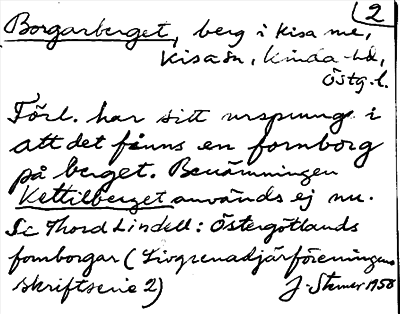 2
Borgarberget, berg i Kisa me,
Kisa sn, Kinda hd,
Östg. l.
Förl. har sitt ursprung i
att det finns en fornborg
på berget. Benämningen
Kettilberget används ej nu.
Se Thord Lindell: Östergötlands
fornborgar (Livgrenadjärföreningens
skriftserie 2) J. Stener 1958